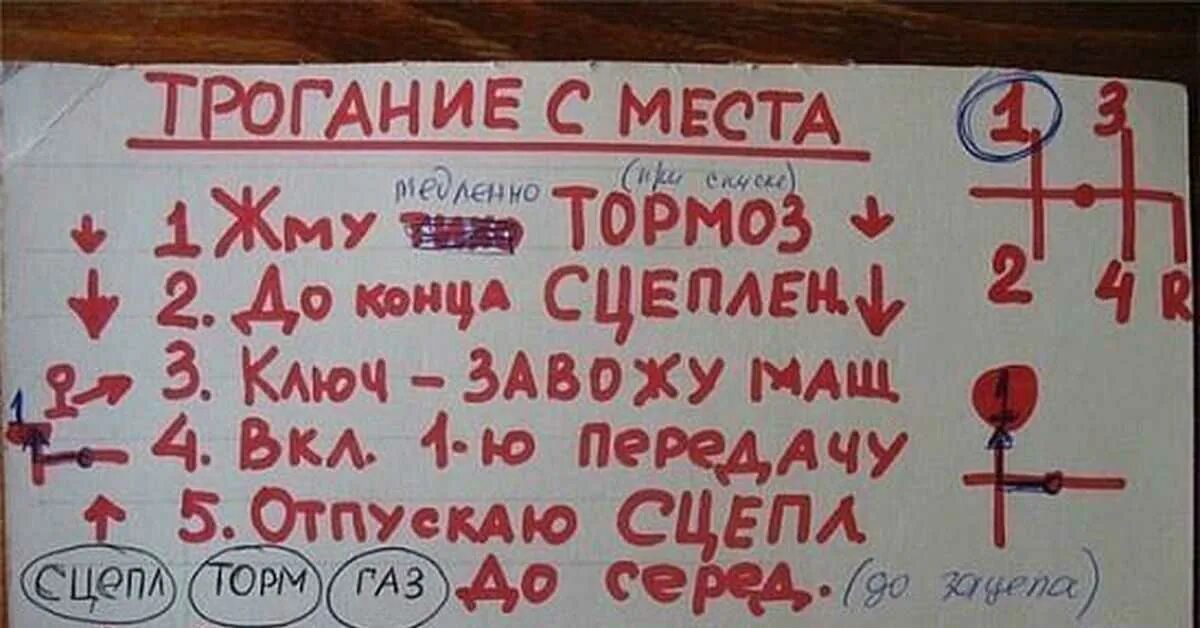 ТРОГАНИЕ С МЕСТА
медленно (при спуске)
1 Жму ТОРМОЗ
2. До конца СЦЕПЛЕН.
3. Ключ - ЗАВОЖУ МАШ
4. Вкл. 1-ю передачу
5. Отпускаю СЦЕПЛ
До серед. (до зацепа)
СЦЕПЛ ТОРМ ГАЗ
1 3
2 4 R
1
1